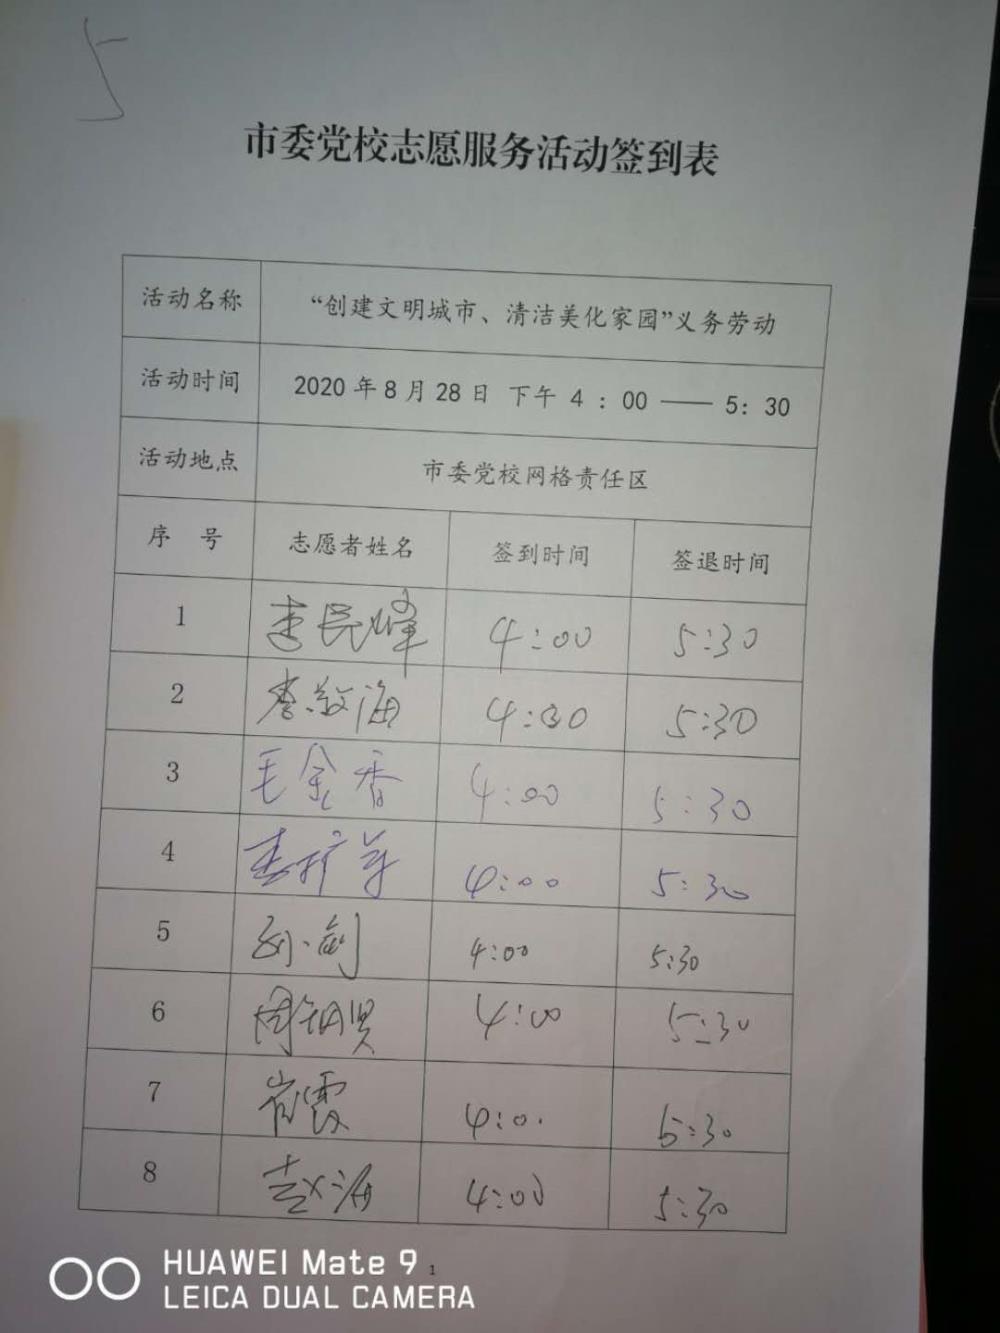 5
市委党校志愿服务活动签到表
活动名称 “创建文明城市、清洁美化家园”义务劳动
活动时间 2020年8月28日 下午 4 : 00 —— 5: 30
活动地点 市委党校网格责任区
序 号 志愿者姓名 签到时间 签退时间
1 李民峰 4:00 5:30
2 李敬海 4:30 5:30
3 毛金香 4:00 5:30
4 4:00 5:30
5 孙剑 4:00 5:30
6 4:00 5:30
7 崔霞 4:00 5:30
8 赵海 4:00 5:30
1
HUAWEI Mate 9
LEICA DUAL CAMERA